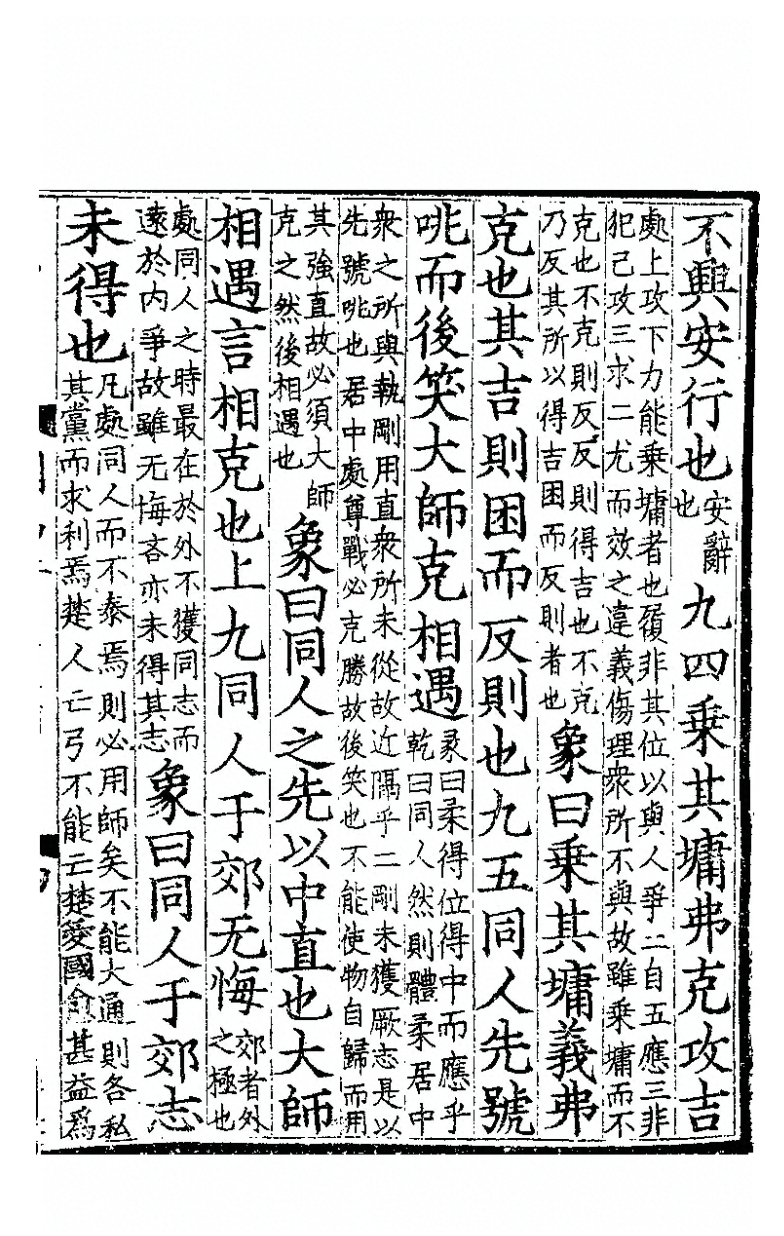 不興安行也安辭也九四乗其墉弗克攻吉
處上攻下力能乗墉者也履非其位以與人爭二自五應三非
犯己攻三求二尤而效之違義傷理衆所不與故雖乗墉而不
克也不克則反反則得吉也不克
乃反其所以得吉困而反則者也象曰乗其墉義弗
克也其吉則困而反則也九五同人先號
咷而後笑大師克相遇彖曰柔得位得中而應乎
乾曰同人然則體柔居中
衆之所與執剛用直衆所未從故近隔乎二剛未獲厥志是以
先號咷也居中處尊戰必克勝故後笑也不能使物自歸而用
其強直故必須大師
克之然後相遇也象曰同人之先以中直也大師
相遇言相克也上九同人于郊无悔郊者外之極也
處同人之時最在於外不獲同志而
遠於内爭故雖无悔吝亦未得其志象曰同人于郊志
未得也凡處同人而不泰焉則必用師矣不能大通則各私
其黨而求利焉楚人亡弓不能亡楚愛國愈甚益爲